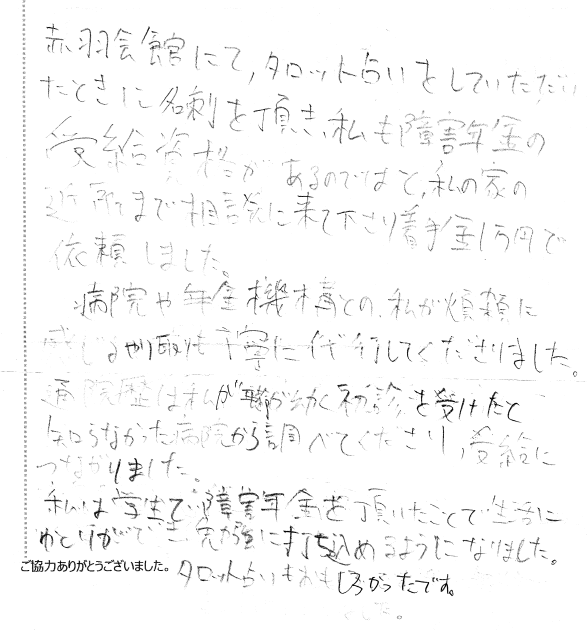 赤羽会館にて,タロット占いをしていただい
たときに名刺を頂き、私も障害年金の
受給資格があるのではと,私の家の
近所まで相談に来て下さり着手金1万円で
依頼しました。
病院や年金機構との、私が煩雑に
感じるやり取りも丁寧に代行してくださりました。
通院歴は私が幼く初診を受けたと
知らなかった病院から調べてくださり,受給に
つながりました。
私は学生で障害年金を頂いたことで生活に
ゆとりがでて に打ち込めるようになりました。
ご協力ありがとうございました。
タロット占いもおもしろかったです。